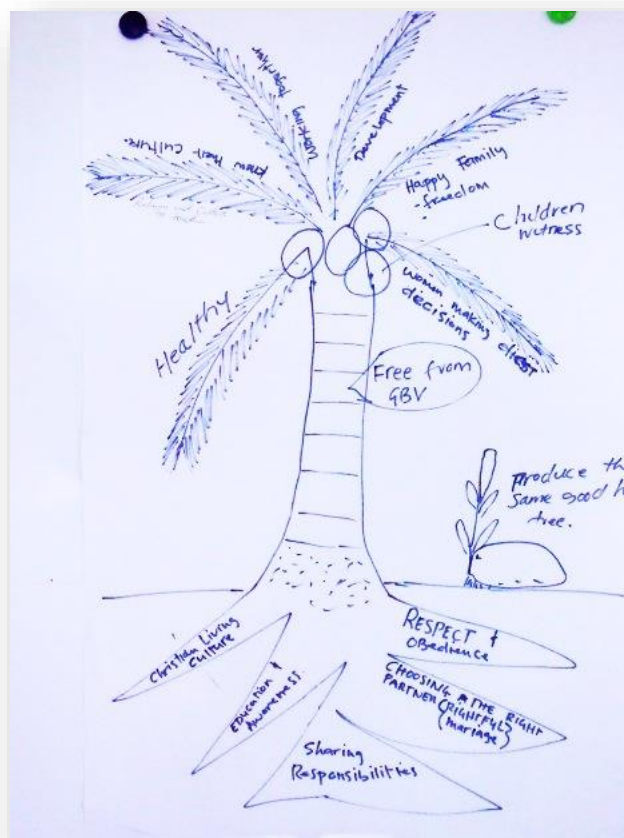 Working together
Development
know their culture.
Happy Family
- freedom
Children
witness
Healthy
women making
decisions
Free from
GBV
produce th
same good h
tree.
Christian Living
Culture
RESPECT +
Obedience
EDucation +
Awareness.
CHOOSING THE RIGHT
PARTNER (RIGHTFUL)
(mariage)
Sharing
Responsibilities